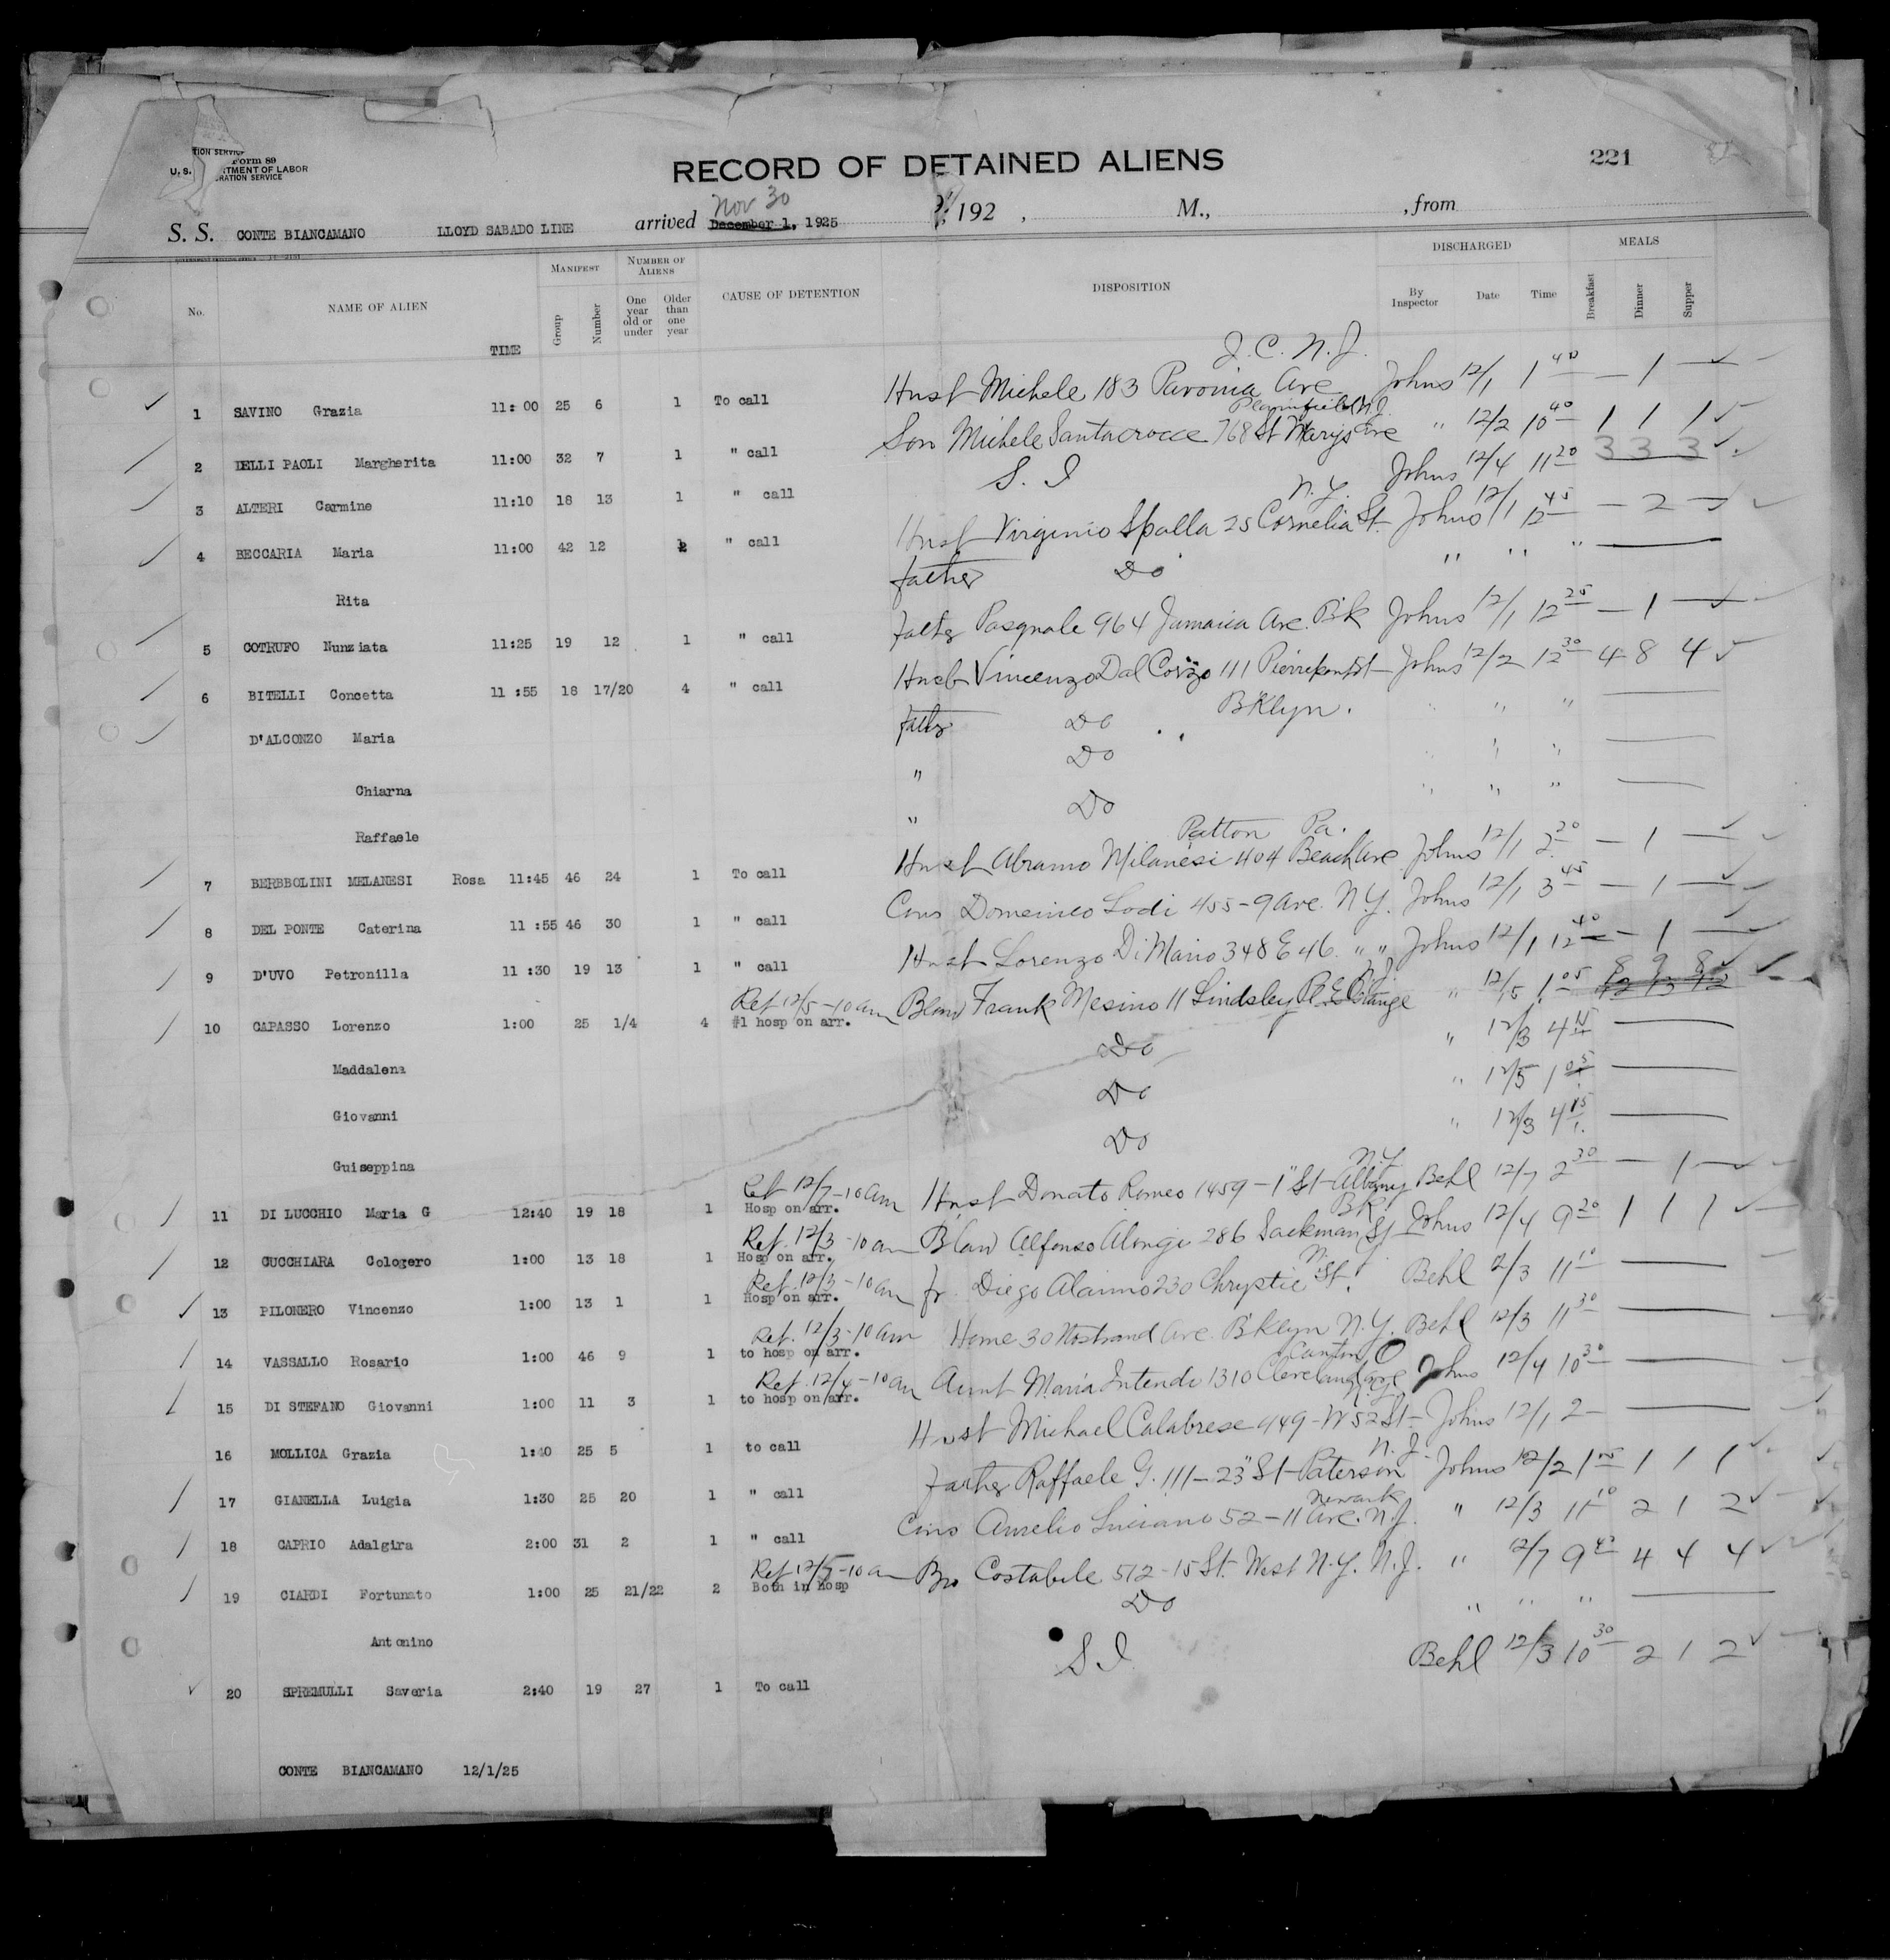 TION SERVICE
Form 89
U. S. RTMENT OF LABOR
RATION SERVICE
RECORD OF DETAINED ALIENS
221
Nov 30
S. S. CONTE BIANCAMANO LLOYD SABADO LINE arrived December 1, 1925 , 192 , M., , from
No. NAME OF ALIEN TIME MANIFEST Group Number NUMBER OF ALIENS One year old or under Older than one year CAUSE OF DETENTION DISPOSITION DISCHARGED By Inspector Date Time MEALS Breakfast Dinner Supper
J. C. N. J.
1 SAVINO Grazia 11:00 25 6 1 To call Husb Michele 183 Pavonia Ave Johns 12/1 1 40 — 1 —
Plainfield N.J.
2 DELLI PAOLI Margherita 11:00 32 7 1 " call Son Michele Santacroce 768 St Marys Ave " 12/2 10 40 1 1 1
3 ALTERI Carmine 11:10 18 13 1 " call S. I Johns 12/4 11 20 3 3 3
N. Y.
4 BECCARIA Maria 11:00 42 12 2 " call Husb Virginio Spalla 25 Cornelia St. Johns 12/1 12 45 — 2 —
Rita father Do " " " —
5 COTRUFO Nunziata 11:25 19 12 1 " call father Pasquale 964 Jamaica Ave. Bk Johns 12/1 12 25 — 1 —
6 BITELLI Concetta 11 :55 18 17/20 4 " call Husb Vincenzo 111 Pierrepont St Johns 12/2 12 30 4 8 4
BKlyn.
D'ALCONZO Maria father Do " " " —
Chiarna " Do " " " —
Raffaele " Do " " " —
Patton Pa.
7 BERBBOLINI MELANESI Rosa 11:45 46 24 1 To call Husb Abramo Milanesi 404 Beach Ave Johns 12/1 2 20 — 1 —
8 DEL PONTE Caterina 11 :55 46 30 1 " call Cous Domenico Lodi 455-9 Ave. N.Y. Johns 12/1 3 45 — 1 —
9 D'UVO Petronilla 11 :30 19 13 1 " call Husb Lorenzo Di Mario 348 E 46. " " Johns 12/1 12 40 — 1 —
Ret 12/5-10 am N.J. 8 9 8
10 CAPASSO Lorenzo 1:00 25 1/4 4 #1 hosp on arr. Blaw Frank Mesino 11 Lindsley Pl E Orange " 12/5 1 05 12 13 12
Maddalena Do " 12/3 4 15 —
Giovanni Do " 12/5 1 05 —
Guiseppina Do " 12/3 4 15 —
Ret 12/7-10 am N.Y.
11 DI LUCCHIO Maria G 12:40 19 18 1 Hosp on arr. Husb Donato Romeo 1459-1" St Albany Behl 12/7 2 30 — 1 —
Ret. 12/3-10 am Bk.
12 CUCCHIARA Cologero 1:00 13 18 1 Hosp on arr. Blaw Alfonso Alongi 286 Sackman St Johns 12/4 9 20 1 1 1
Ret. 12/3-10 am
13 PILONERO Vincenzo 1:00 13 1 1 Hosp on arr. fr. Diego Alaimo 230 Chrystie St. Behl 12/3 11 10 —
Ret. 12/3-10 am
14 VASSALLO Rosario 1:00 46 9 1 to hosp on arr. Home 30 Nostrand Ave. BKlyn N.Y. Behl 12/3 11 30 —
Ret. 12/4-10 am Canton O
15 DI STEFANO Giovanni 1:00 11 3 1 to hosp on arr. Aunt Maria Intendi 1310 Cleveland Ave Johns 12/4 10 30 —
N.Y.
16 MOLLICA Grazia 1:40 25 5 1 to call Husb Michael Calabrese 449-W 52 St- Johns 12/1 2 —
N. J.
17 GIANELLA Luigia 1:30 25 20 1 " call father Raffaele G. 111-23" St Paterson Johns 12/2 1 05 1 1 1
Newark
18 CAPRIO Adalgira 2:00 31 2 1 " call Cous Aurelio Luciano 52-11 Ave. N.J. " 12/3 11 10 2 1 2
Ret 12/5-10 am
19 CIARDI Fortunato 1:00 25 21/22 2 Both in hosp Bro Costabile 512-15 St. West N.Y. N.J. " 12/7 9 40 4 4 4
Antonino Do " " " —
20 SPREMULLI Saveria 2:40 19 27 1 To call S I Behl 12/3 10 30 2 1 2
CONTE BIANCAMANO 12/1/25